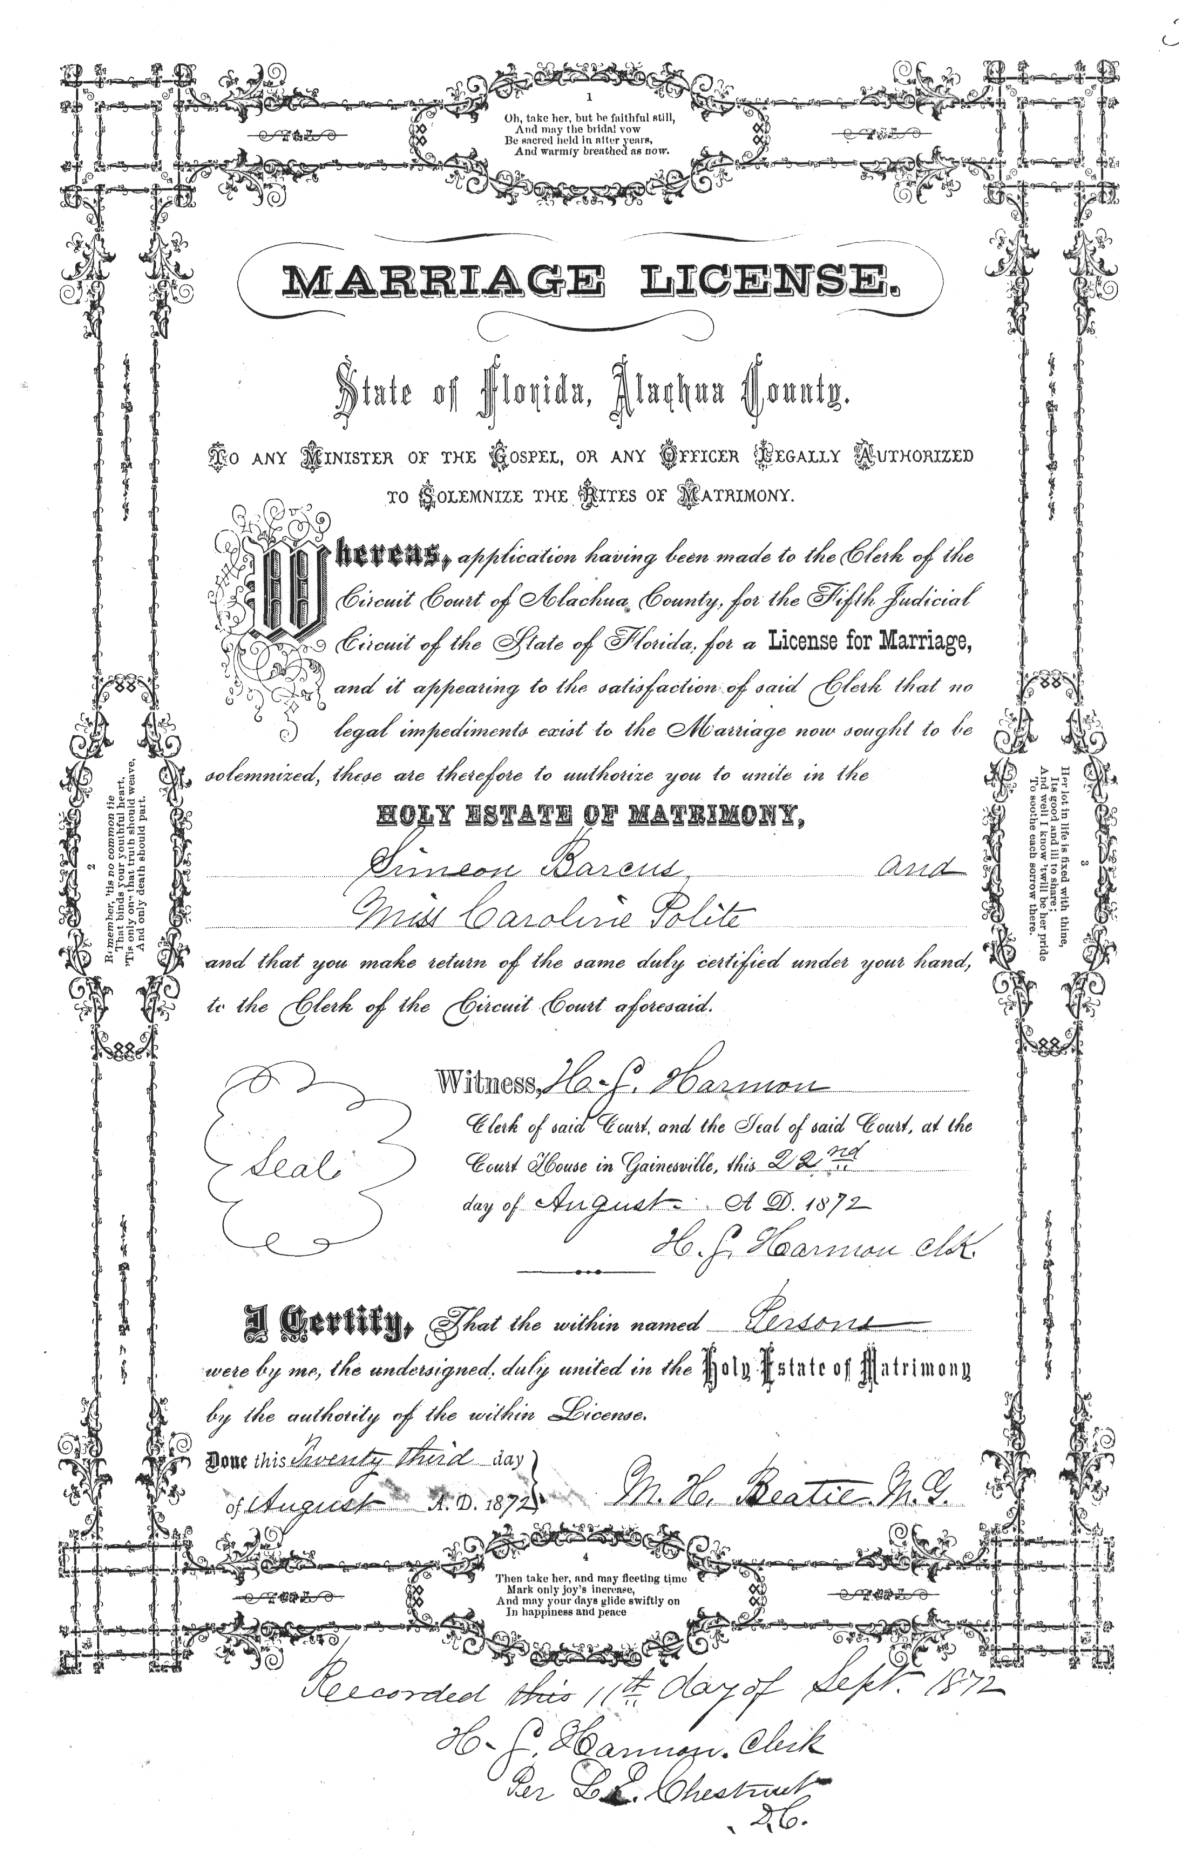 1
Oh, take her, but be faithful still,
And may the bridal vow
Be sacred held in after years,
And warmly breathed as now.
MARRIAGE LICENSE.
State of Florida, Alachua County.
TO ANY MINISTER OF THE GOSPEL, OR ANY OFFICER LEGALLY AUTHORIZED
TO SOLEMNIZE THE RITES OF MATRIMONY.
Whereas, application having been made to the Clerk of the
Circuit Court of Alachua County, for the Fifth Judicial
Circuit of the State of Florida, for a License for Marriage,
and it appearing to the satisfaction of said Clerk that no
legal impediments exist to the Marriage now sought to be
solemnized, these are therefore to authorize you to unite in the
HOLY ESTATE OF MATRIMONY,
Simeon Barcus, and
Miss Caroline Polite
and that you make return of the same duly certified under your hand,
to the Clerk of the Circuit Court aforesaid.
2
Remember, 'tis no common tie
That binds your youthful heart,
'Tis only one that truth should weave,
And only death should part.
3
Her lot in life is fixed with thine,
Its good and ill to share;
And well I know 'twill be her pride
To soothe each sorrow there.
Seal
Witness, H. G. Harmon
Clerk of said Court, and the Seal of said Court, at the
Court House in Gainesville, this 22nd
day of August. A D. 1872
H. G. Harmon Clk.
I Certify, That the within named Persons
were by me, the undersigned, duly united in the Holy Estate of Matrimony
by the authority of the within License.
Done this Twenty third day
of August A. D. 1872
M. H. Beatie. M. G.
4
Then take her, and may fleeting time
Mark only joy's increase,
And may your days glide swiftly on
In happiness and peace
Recorded this 11th day of Sept. 1872
H. G. Harmon. Clerk
Per L. E. Chestnut
D.C.